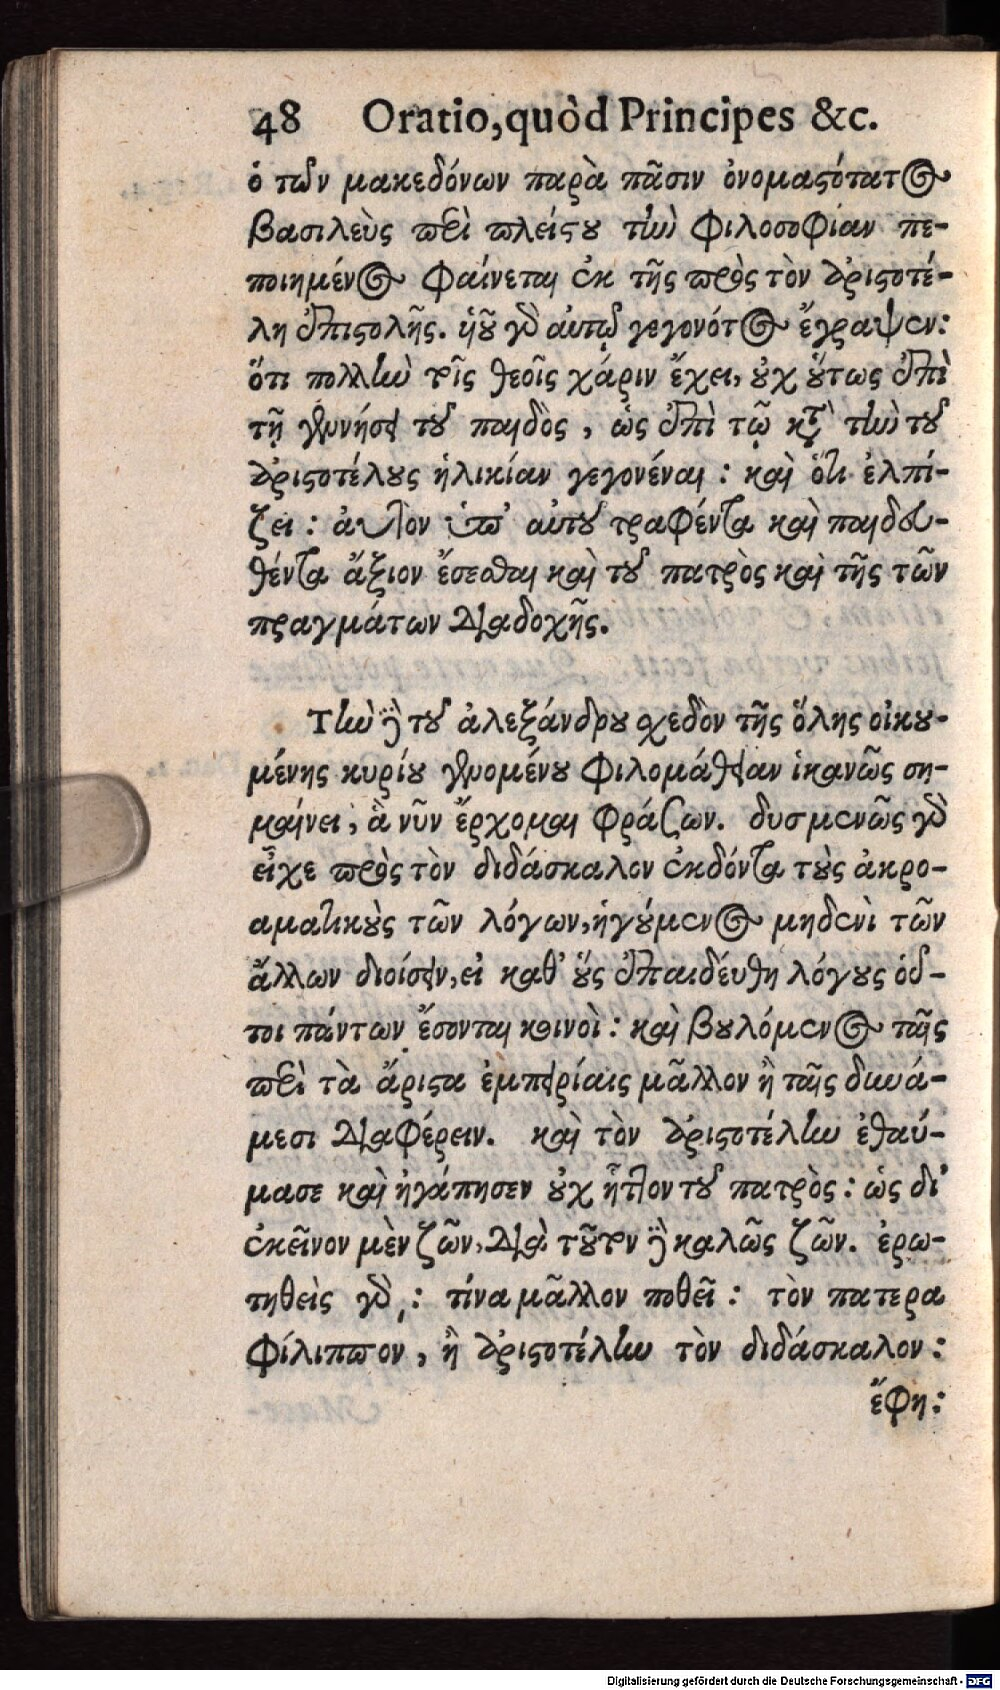 48 Oratio, quòd Principes &c.
ὁ τῶν μακεδόνων παρὰ πᾶσιν ὀνομαςότατος
βασιλεὺς περὶ πλείςου τὴν φιλοσοφίαν πε-
ποιημένος φαίνεται ἐκ τῆς πρὸς τὸν ἀριςοτέ-
λη ἐπιςολῆς. ὑιοῦ γὰρ αὐτῷ γεγονότος ἔγραψεν:
ὅτι πολλὴν τοῖς θεοῖς χάριν ἔχει, οὐχ οὕτως ἐπὶ
τῇ γεννήσει τοῦ παιδὸς, ὡς ἐπὶ τῷ κατὰ τὴν τοῦ
ἀριςοτέλους ἡλικίαν γεγονέναι: καὶ ὅτι ἐλπί-
ζει: ἀυτὸν ὑπ' αὐτοῦ τραφέντα καὶ παιδευ-
θέντα ἄξιον ἔσεσθαι καὶ τοῦ πατρὸς καὶ τῆς τῶν
πραγμάτων διαδοχῆς.
Τὴν δὲ τοῦ ἀλεξάνδρου σχεδὸν τῆς ὅλης οἰκου-
μένης κυρίου γενομένου φιλομάθειαν ἱκανῶς ση-
μαίνει, ἃ νῦν ἔρχομαι φράζων. δυσμενῶς γὰρ
εἶχε πρὸς τὸν διδάσκαλον ἐκδόντα τοὺς ἀκρο-
αματικοὺς τῶν λόγων, ἡγούμενος μηδενὶ τῶν
ἄλλων διοίσειν, εἰ καθ' οὓς ἐπαιδέυθη λόγους οὗ-
τοι πάντων ἔσονται κοινοὶ: καὶ βουλόμενος ταῖς
περὶ τὰ ἄριςα ἐμπειρίαις μᾶλλον ἢ ταῖς δυνά-
μεσι διαφέρειν. καὶ τὸν ἀριςοτέλην ἐθαύ-
μασε καὶ ἠγάπησεν οὐχ ἧττον τοῦ πατρὸς: ὡς δι'
ἐκεῖνον μὲν ζῶν, διὰ τοῦτον δὲ καλῶς ζῶν. ἐρω-
τηθεὶς γὰρ,: τίνα μᾶλλον ποθεῖ: τὸν πατερα
Φίλιππον, ἢ ἀριςοτέλην τὸν διδάσκαλον:
ἔφη:
Digitalisierung gefördert durch die Deutsche Forschungsgemeinschaft - DFG